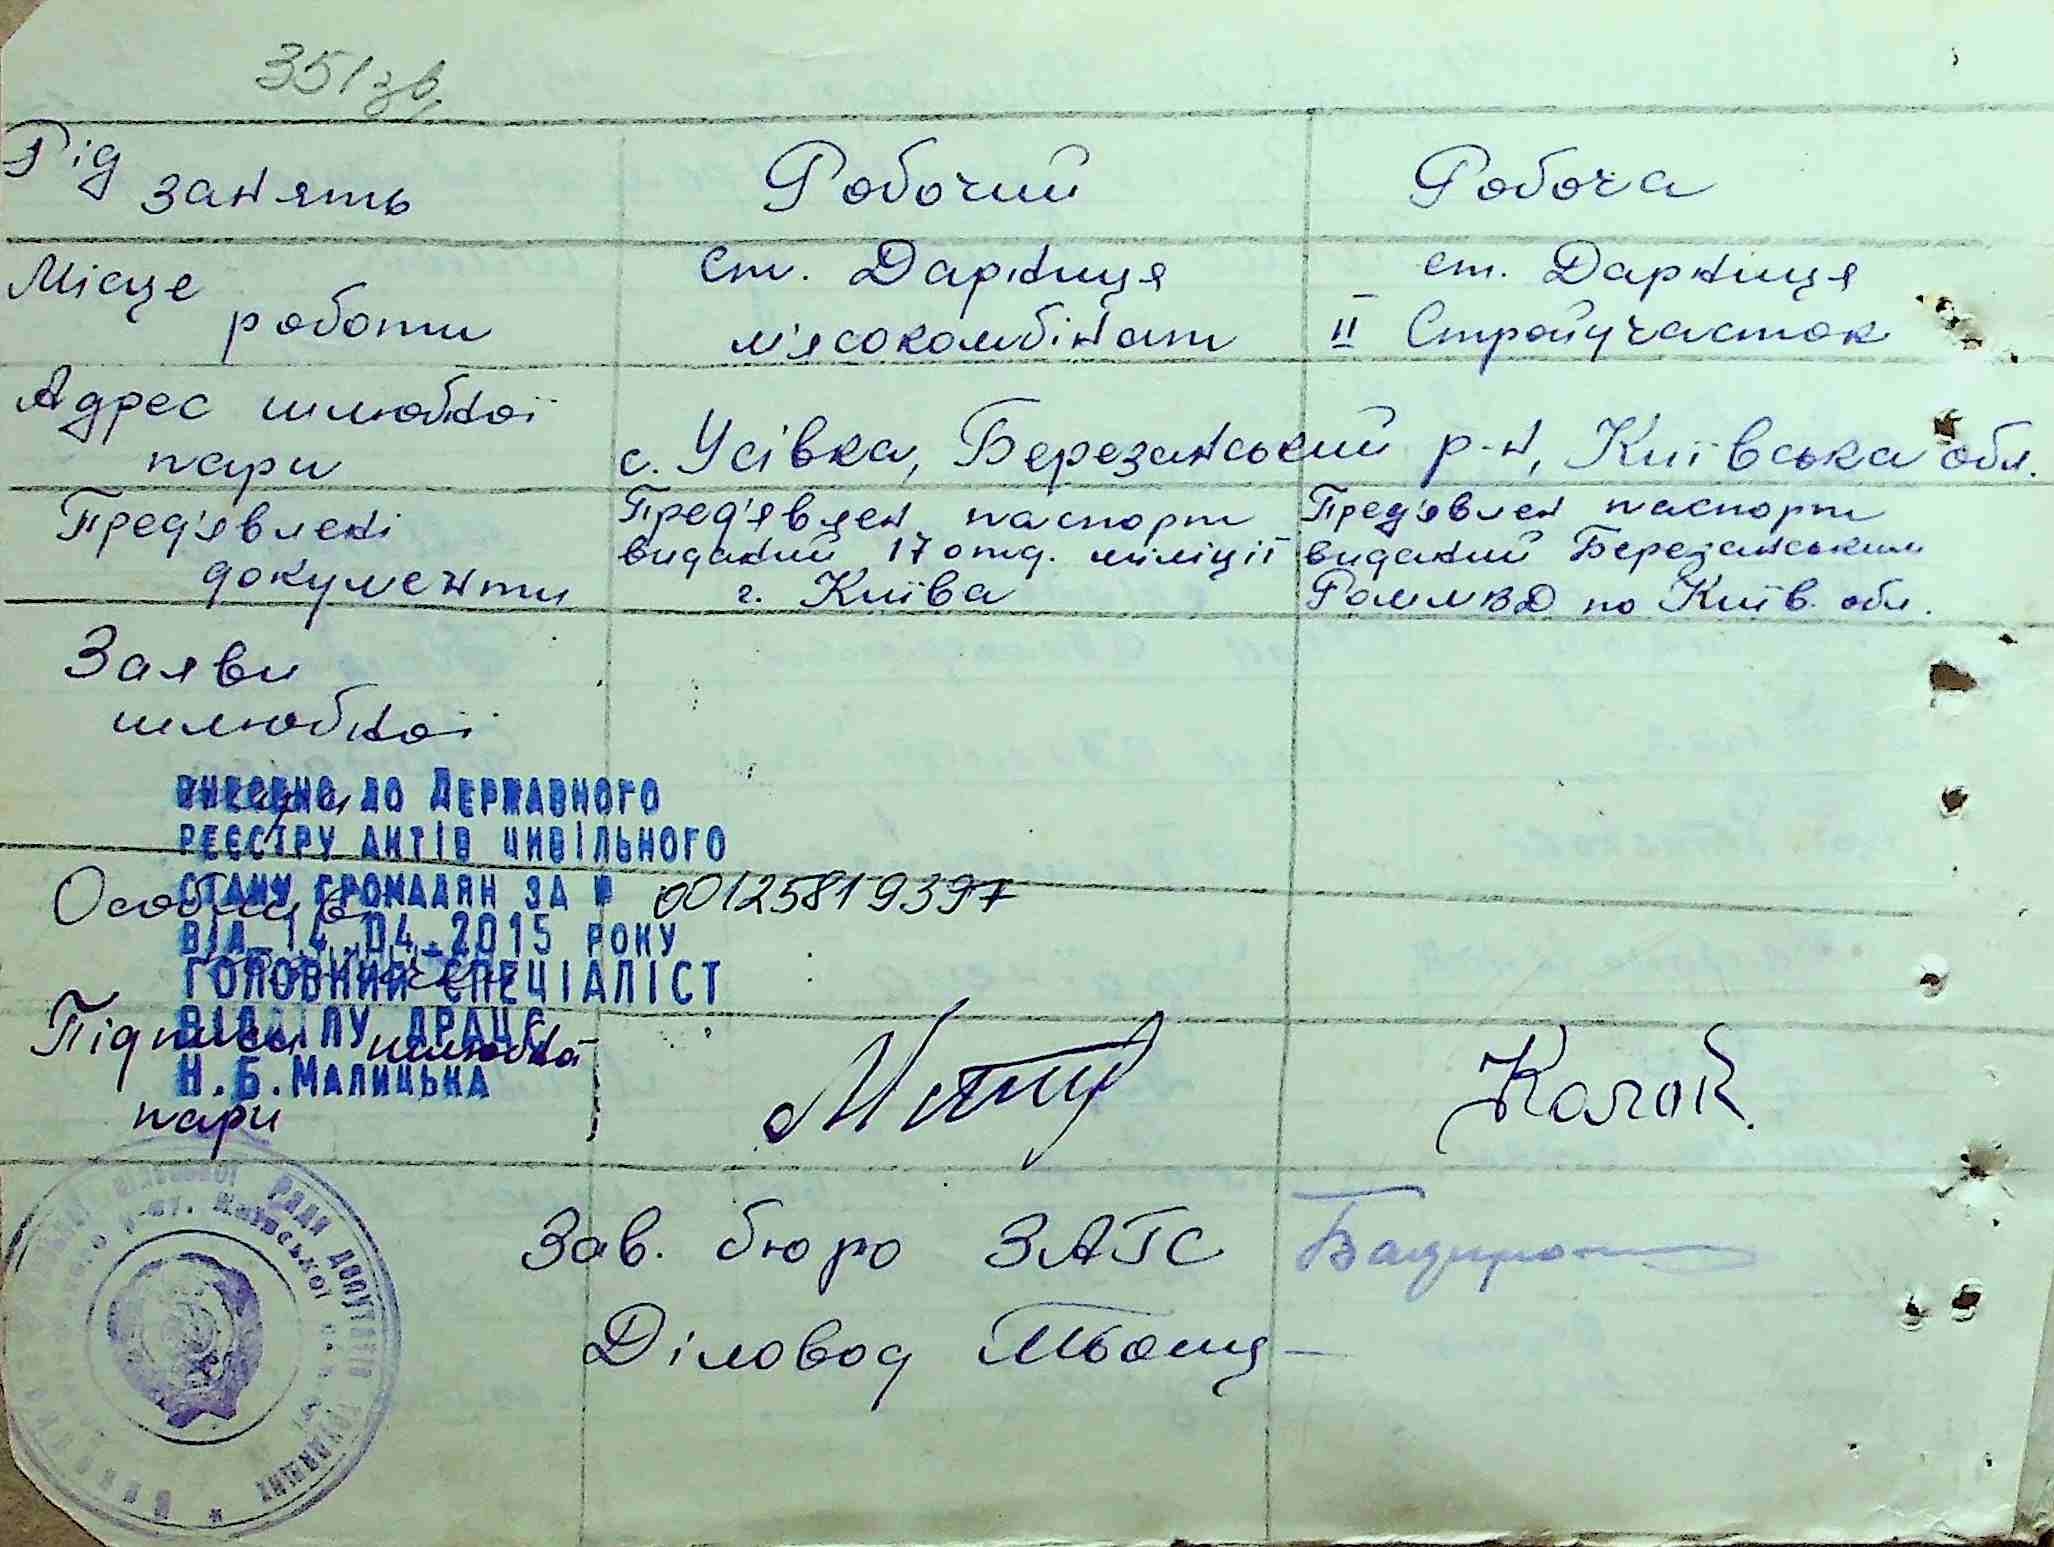 351зв.
Рід занять
Робочий
Робоча
Місце роботи
ст. Дарниця
м'ясокомбінат
ст. Дарниця
II Стройучасток
Адрес шлюбної
пари
с. Усівка, Березанський р-н, Київська обл.
Пред'явлені
документи
Пред'явлен паспорт
виданий 17 отд. міліції
г. Київа
Пред'явлен паспорт
виданий Березанським
РОММВД по Київ. обл.
Заяви
шлюбної
пари
ВНЕСЕНО ДО ДЕРЖАВНОГО
РЕЄСТРУ АКТІВ ЦИВІЛЬНОГО
СТАНУ ГРОМАДЯН ЗА № 00125819397
ВІД 14.04.2015 РОКУ
ГОЛОВНИЙ СПЕЦІАЛІСТ
ВІДДІЛУ ДРАЦС
Н.Б.МАЛИЦЬКА
Особливі
Підписи шлюбної
пари
Зав. бюро ЗАГС
Діловод
РАДИ ДЕПУТАТІВ ТРУДЯЩИХ
р-ну, Київської